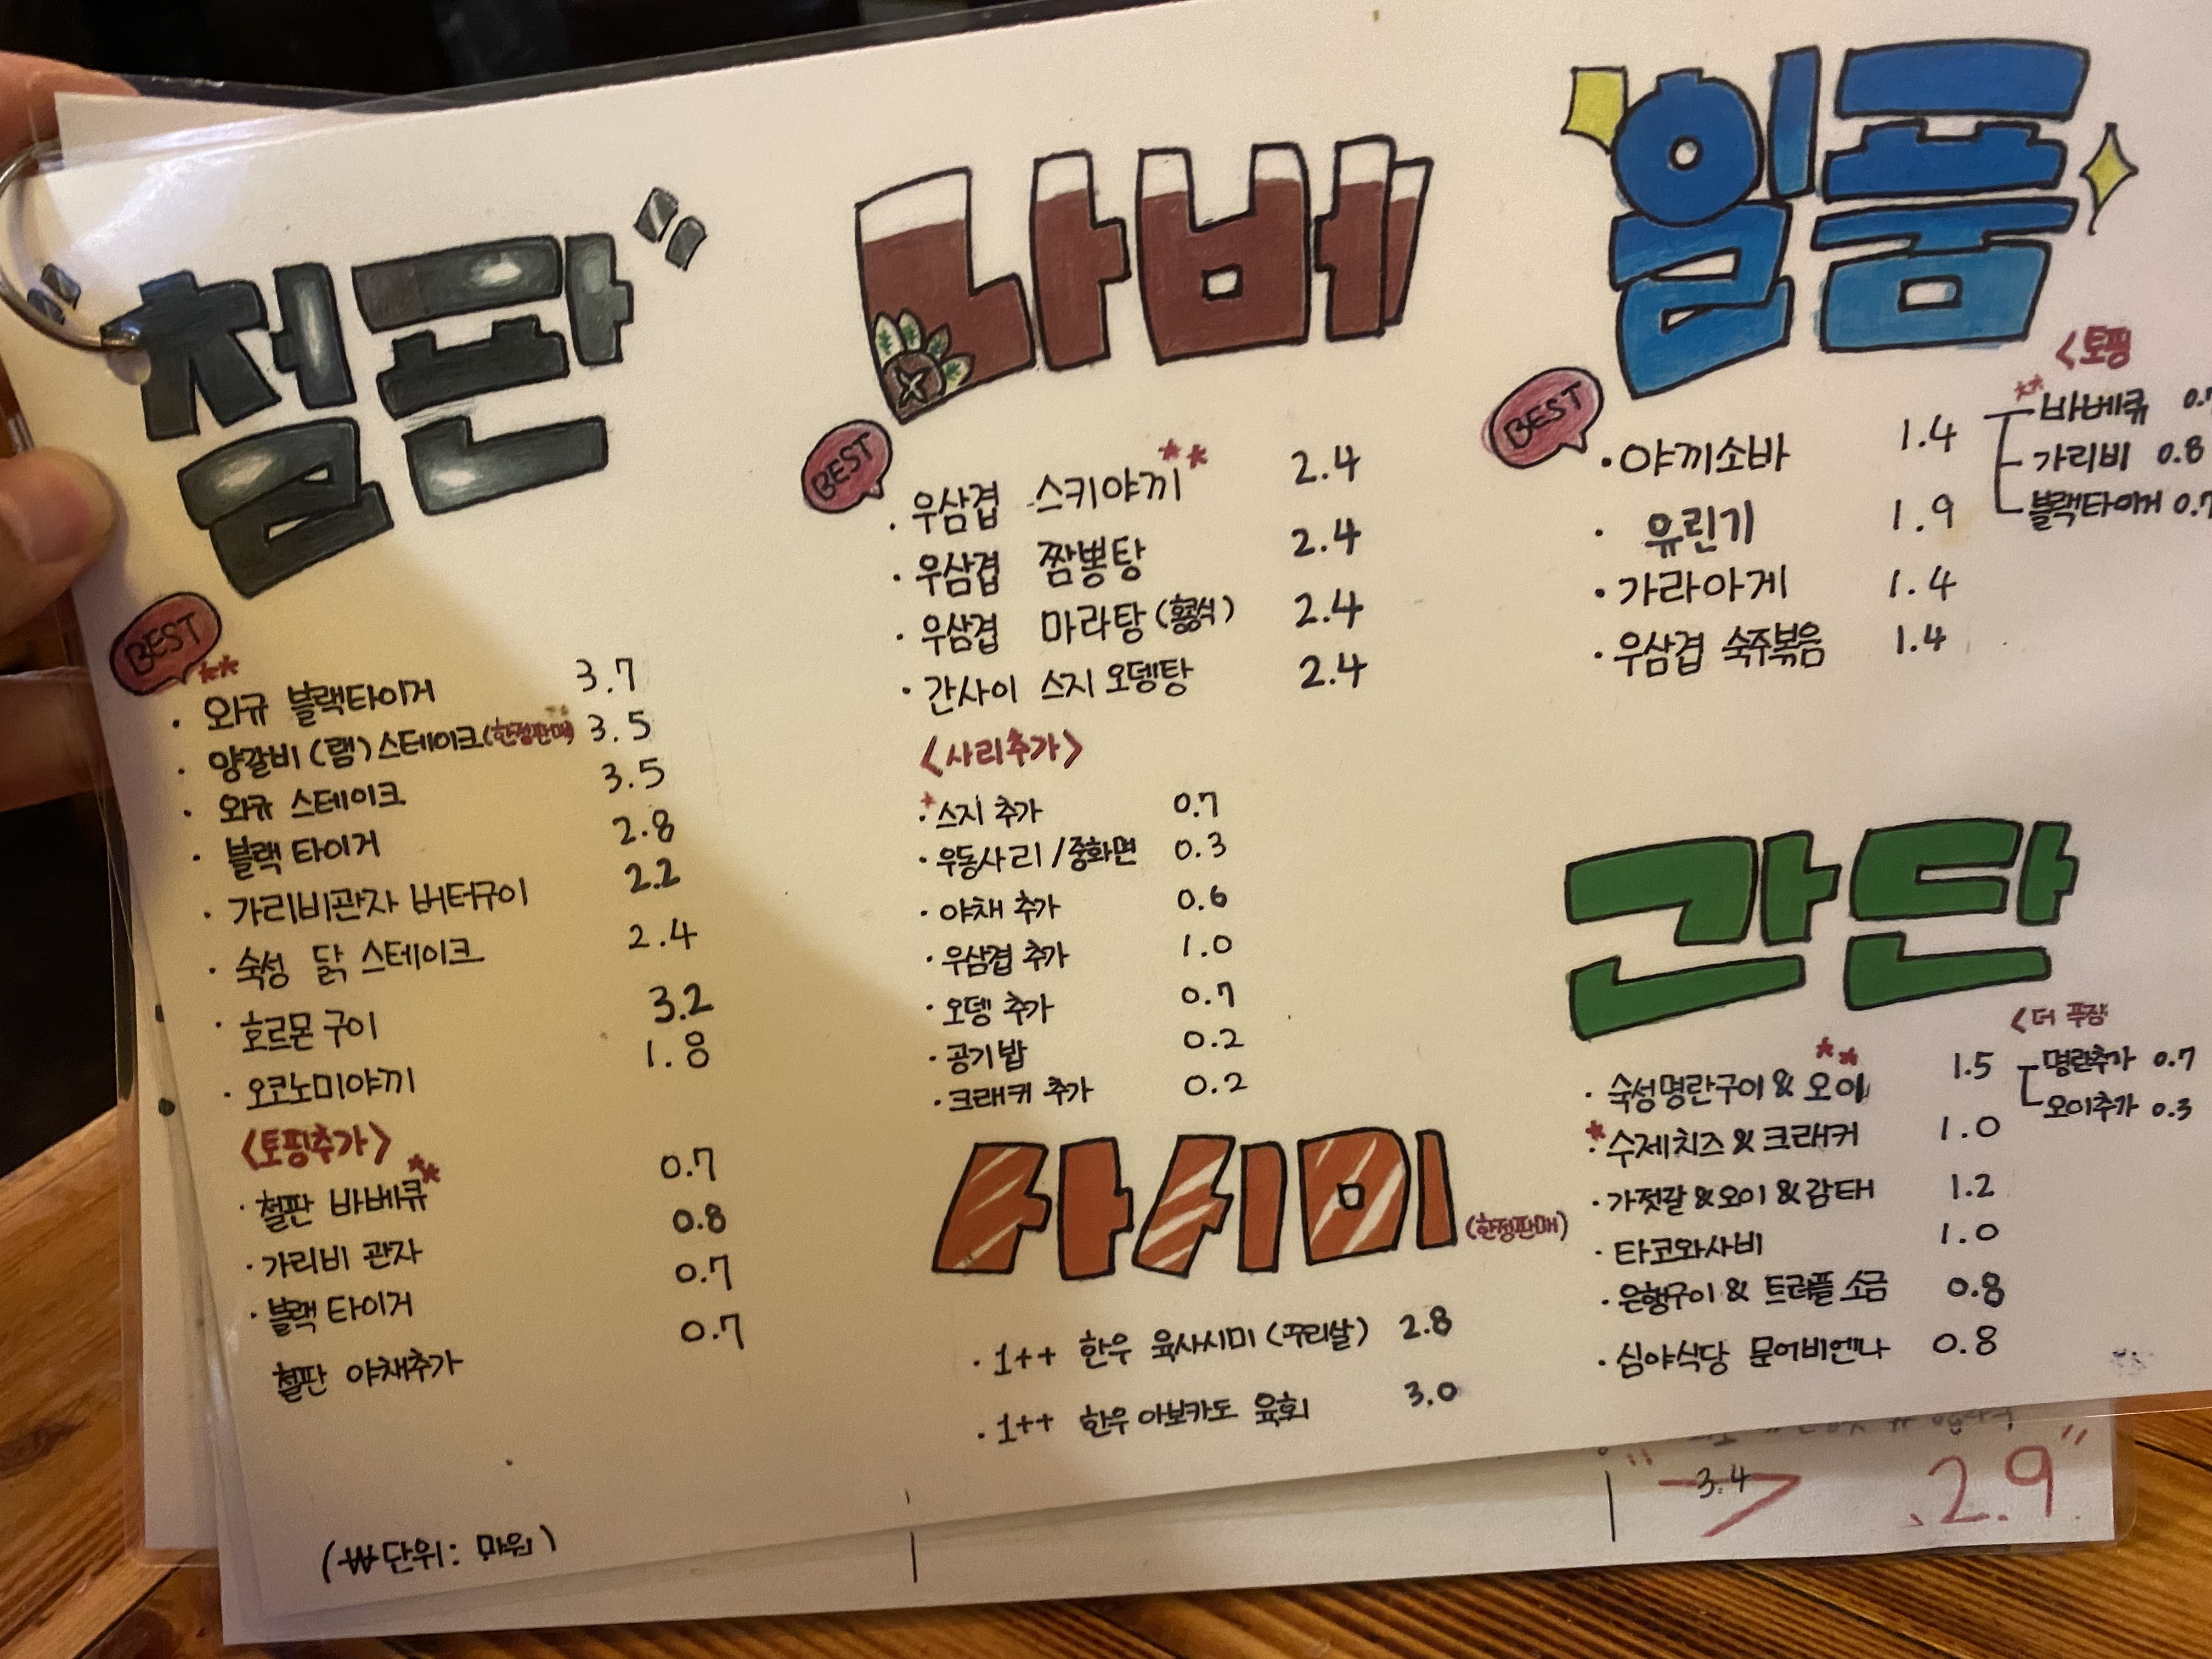 철판
BEST
· 와규 블랙타이거 3.7
· 양갈비(램)스테이크(한정판매) 3.5
· 와규 스테이크 3.5
· 블랙 타이거 2.8
· 가리비관자 버터구이 2.2
· 숙성 닭 스테이크 2.4
· 호르몬 구이 3.2
· 오코노미야끼 1.8
<토핑추가>
· 철판 바베큐 0.7
· 가리비 관자 0.8
· 블랙 타이거 0.7
철판 야채추가 0.7
(₩단위: 만원)
나베
BEST
· 우삼겹 스키야끼 2.4
· 우삼겹 짬뽕탕 2.4
· 우삼겹 마라탕 2.4
· 간사이 스지 오뎅탕 2.4
<사리추가>
· 스지 추가 0.7
· 우동사리/중화면 0.3
· 야채 추가 0.6
· 우삼겹 추가 1.0
· 오뎅 추가 0.7
· 공기밥 0.2
· 크래커 추가 0.2
사시미
(한정판매)
· 1++ 한우 육사시미 (꾸리살) 2.8
· 1++ 한우 아보카도 육회 3.0
일품
BEST
· 야끼소바 1.4
· 유린기 1.9
· 가라아게 1.4
· 우삼겹 숙주볶음 1.4
<토핑
바베큐
가리비 0.8
블랙타이거 0.7
간단
· 숙성명란구이 & 오이 1.5
· 수제치즈 & 크래커 1.0
· 가젓갈&오이&감태 1.2
· 타코와사비 1.0
· 은행구이 & 트러플 소금 0.8
· 심야식당 문어비엔나 0.8
<더
명란추가 0.7
오이추가 0.3
3.4
2.9